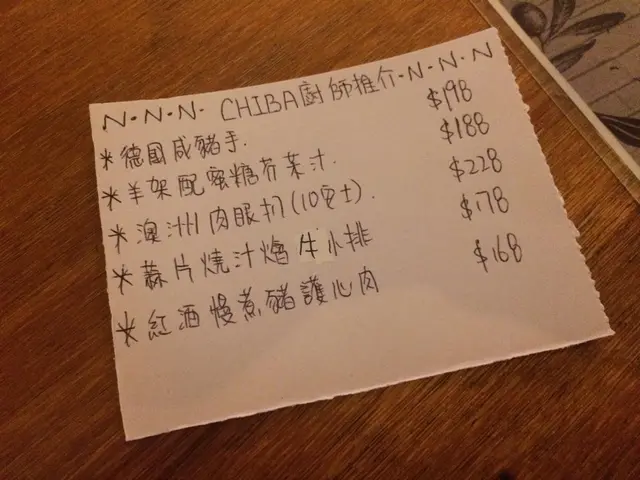 N·N·N· CHIBA廚師推介·N·N·N
*德國咸豬手. $198
*羊架配蜜糖芥茉汁. $188
*澳洲肉眼扒(10安士). $228
*蒜片燒汁燴牛小排 $178
*紅酒慢煮豬護心肉 $168